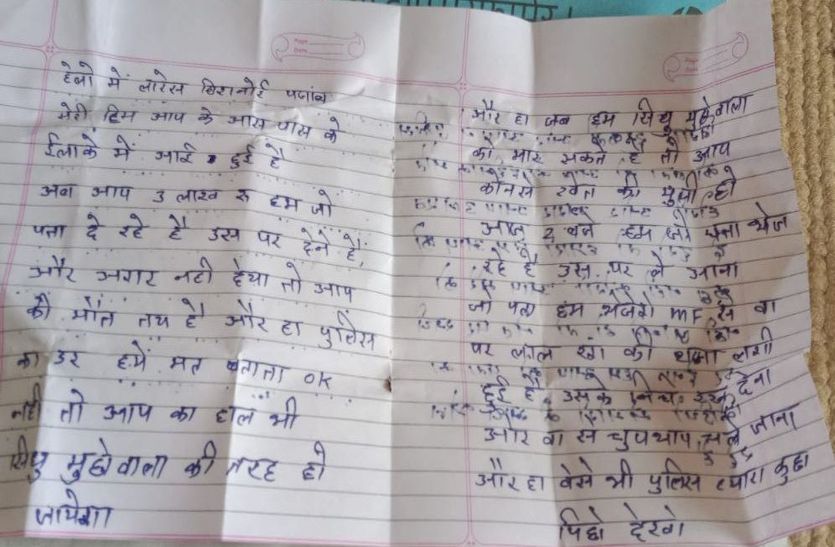 हेलो में लारेस बिशनोई पजांब
मेरी टिम आप के आस पास के
ईलाके में आई हुई है
अब आप 3 लाख रु हम जो
पता दे रहे है उस पर देने है,
और अगर नही देया तो आप
की मौत तय है और हा पुलिस
का डर हमें मत बताना ok
नही तो आप का हाल भी
सिधु मुहोवाला की तरह हो
जायेगा
और हा जब हम सिधु मुहोवाला
को मार सकते है तो आप
कोनसे की मुली हो
आज 2 बजे हम जो पता भेज
रहे है उस पर ले आना
जो पता हम भेजेगे
पर लाल रंग की लगी
हुई है उसके निचे रख देना
और वा से चुपचाप चले जाना
और हा वेसे भी पुलिस त्मारा कुछ
पिछे देखो